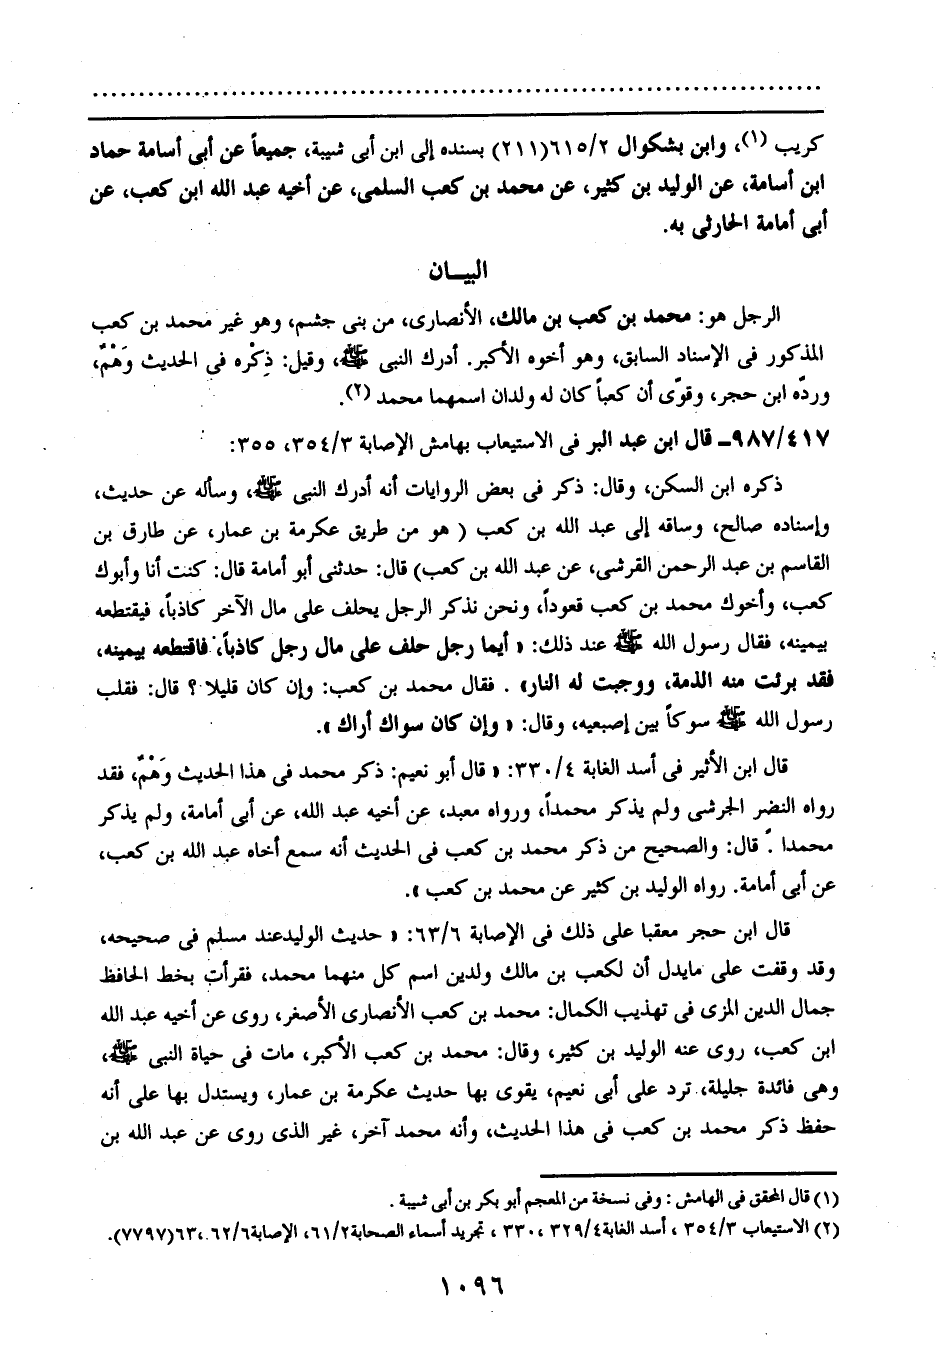 كريب (١)، وابن بشكوال ٦١٥/٢(٢١١) بسنده إلى ابن أبى شيبة، جميعاً عن أبى أسامة حماد
ابن أسامة، عن الوليد بن كثير، عن محمد بن كعب السلمى، عن أخيه عبد الله ابن كعب، عن
أبى أمامة الحارثى به.
البيـــان
الرجل هو: محمد بن كعب بن مالك، الأنصارى، من بنى جشم، وهو غير محمد بن كعب
المذكور فى الإسناد السابق، وهو أخوه الأكبر. أدرك النبى ﷺ، وقيل: ذِكْره فى الحديث وَهْمٌ،
وردّه ابن حجر، وقوّى أن كعباً كان له ولدان اسمهما محمد (٢).
٩٨٧/٤١٧ـ قال ابن عبد البر فى الاستيعاب بهامش الإصابة ٣٥٤/٣، ٣٥٥:
ذكره ابن السكن، وقال: ذكر فى بعض الروايات أنه أدرك النبى ﷺ، وسأله عن حديث،
وإسناده صالح، وساقه إلى عبد الله بن كعب ( هو من طريق عكرمة بن عمار، عن طارق بن
القاسم بن عبد الرحمن القرشى، عن عبد الله بن كعب) قال: حدثنى أبو أمامة قال: كنت أنا وأبوك
كعب، وأخوك محمد بن كعب قعوداً، ونحن نذكر الرجل يحلف على مال الآخر كاذباً، فيقتطعه
بيمينه، فقال رسول الله ﷺ عند ذلك: « أيما رجل حلف على مال رجل كاذباً، فاقتطعه بيمينه،
فقد برئت منه الذمة، ووجبت له النار» . فقال محمد بن كعب: وإن كان قليلا ؟ قال: فقلب
رسول الله ﷺ سوكاً بين إصبعيه، وقال: « وإن كان سواك أراك ».
قال ابن الأثير فى أسد الغابة ٣٣٠/٤: « قال أبو نعيم: ذكر محمد فى هذا الحديث وَهْمٌ، فقد
رواه النضر الجرشى ولم يذكر محمداً، ورواه معبد، عن أخيه عبد الله، عن أبى أمامة، ولم يذكر
محمداً . قال: والصحيح من ذكر محمد بن كعب فى الحديث أنه سمع أخاه عبد الله بن كعب،
عن أبى أمامة. رواه الوليد بن كثير عن محمد بن كعب ».
قال ابن حجر معقبا على ذلك فى الإصابة ٦٣/٦: « حديث الوليدعند مسلم فى صحيحه،
وقد وقفت على مايدل أن لكعب بن مالك ولدين اسم كل منهما محمد، فقرأت بخط الحافظ
جمال الدين المزى فى تهذيب الكمال: محمد بن كعب الأنصارى الأصغر، روى عن أخيه عبد الله
ابن كعب، روى عنه الوليد بن كثير، وقال: محمد بن كعب الأكبر، مات فى حياة النبى ﷺ،
وهى فائدة جليلة، ترد على أبى نعيم، يقوى بها حديث عكرمة بن عمار، ويستدل بها على أنه
حفظ ذكر محمد بن كعب فى هذا الحديث، وأنه محمد آخر، غير الذى روى عن عبد الله بن
(١) قال المحقق فى الهامش : وفى نسخة من المعجم أبو بكر بن أبى شيبة .
(٢) الاستيعاب ٣٥٤/٣ ، أسد الغابة٣٢٩/٤ ،٣٣٠ ، تجريد أسماء الصحابة٦١/٢، الإصابة٦٢/٦ ،٦٣(٧٧٩٧).
١٠٩٦